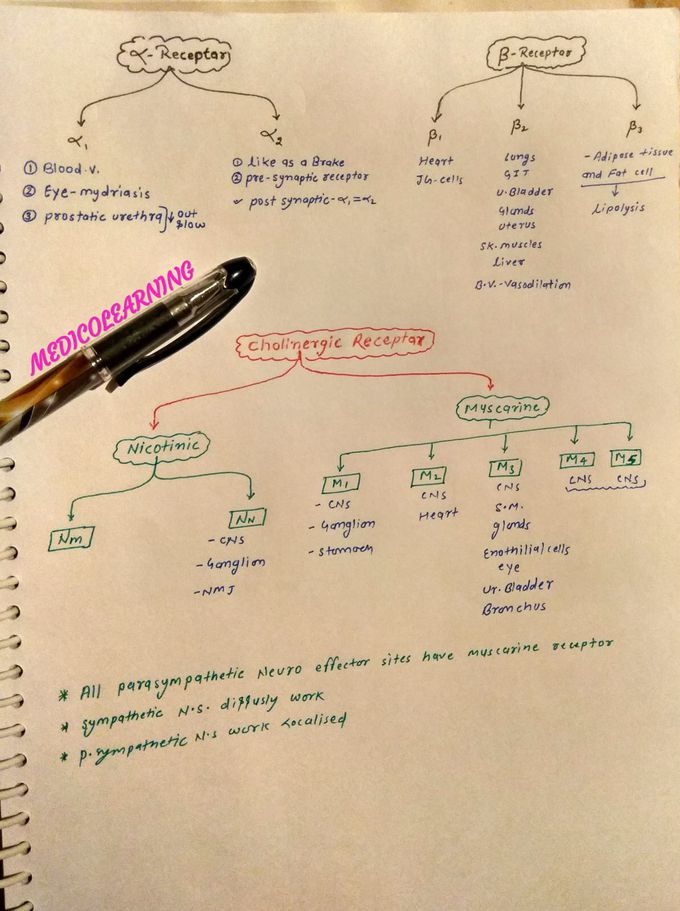 α-Receptor
α₁
① Blood.v.
② Eye-mydriasis
③ prostatic urethra} ↓ out flow
α₂
① like as a Brake
② pre-synaptic receptor
✓ post synaptic-α₁=α₂
β-Receptor
β₁
Heart
JG-cells
β₂
Lungs
GIT
U.Bladder
Glands
uterus
SK.muscles
liver
B.V.-Vasodilation
β₃
- Adipose tissue
and Fat cell
↓
Lipolysis
MEDICOLEARNING
Cholinergic Receptor
Nicotinic
Nm
NN
- CNS
- Ganglion
- NMJ
Muscarine
M1
- CNS
- Ganglion
- Stomach
M2
CNS
Heart
M3
CNS
S.M.
glands
Enothilial cells
eye
Ur.Bladder
Bronchus
M4
CNS
M5
CNS
* All parasympathetic Neuro effector sites have muscarine receptor
* sympathetic N.S. diffusly work
* p.sympathetic N.S work Localised